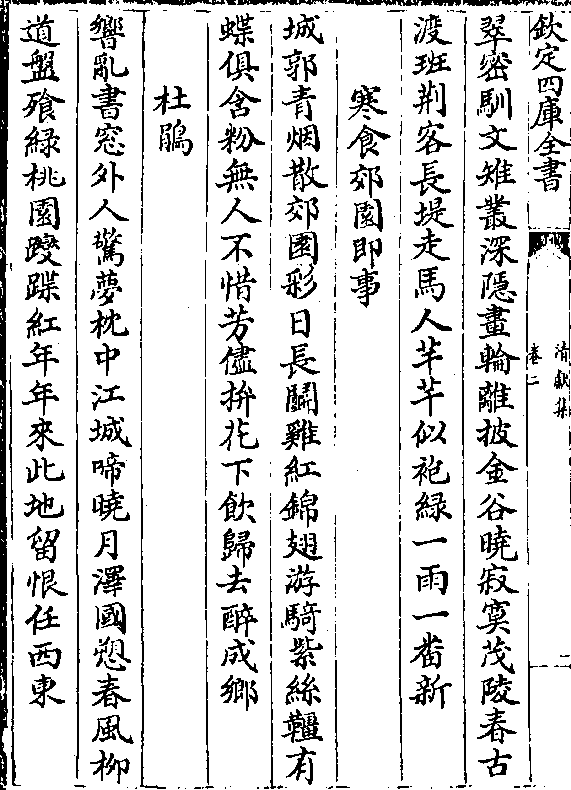 欽定四庫全書
清獻集
卷二
二
翠密馴文雉叢深隱畫輪離披金谷曉寂寞茂陵春古
渡班荆客長堤走馬人芊芊似袍緑一雨一番新
寒食郊園即事
城郭青烟散郊園彩日長鬭雞紅錦翅游騎紫絲韁有
蝶俱含粉無人不惜芳儘拚花下飲歸去醉成鄉
杜鵑
響亂書窓外人驚夢枕中江城啼曉月澤國愬春風栁
道盤飱緑桃園躞蹀紅年年來此地留恨任西東